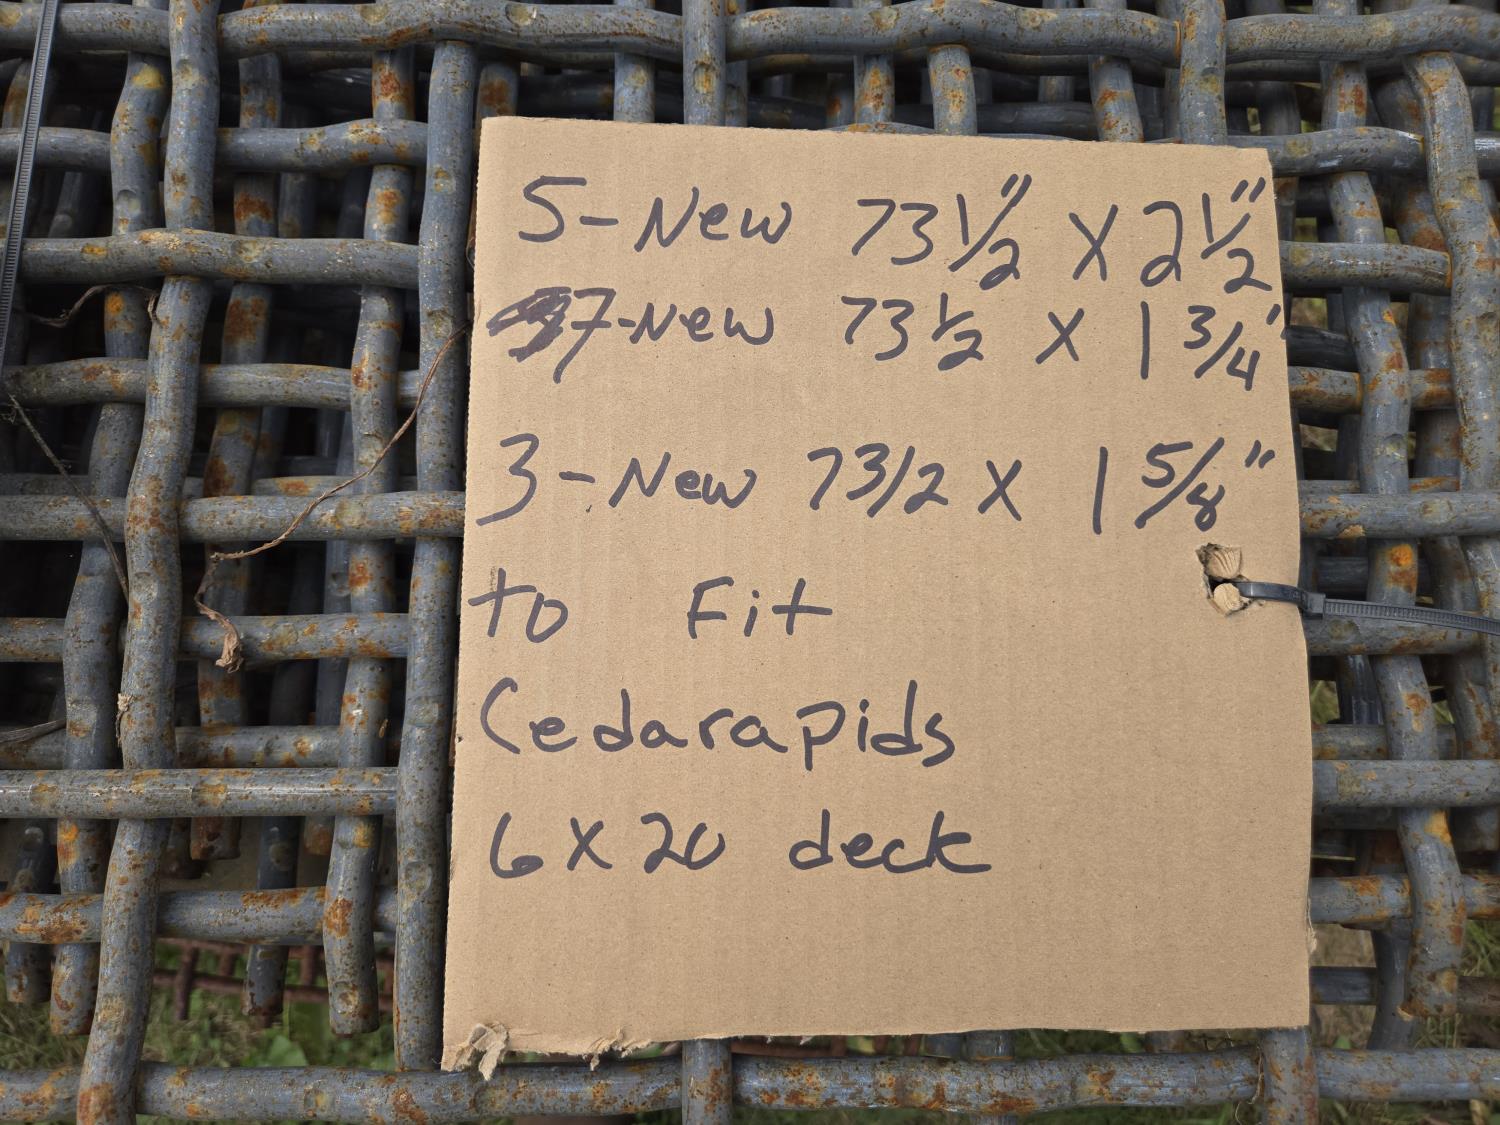 5-New 73 1/2" X 2 1/2"
7-New 73 1/2 X 1 3/4"
3-New 73/2 X 1 5/8"
to Fit
Cedarapids
6 X 20 deck